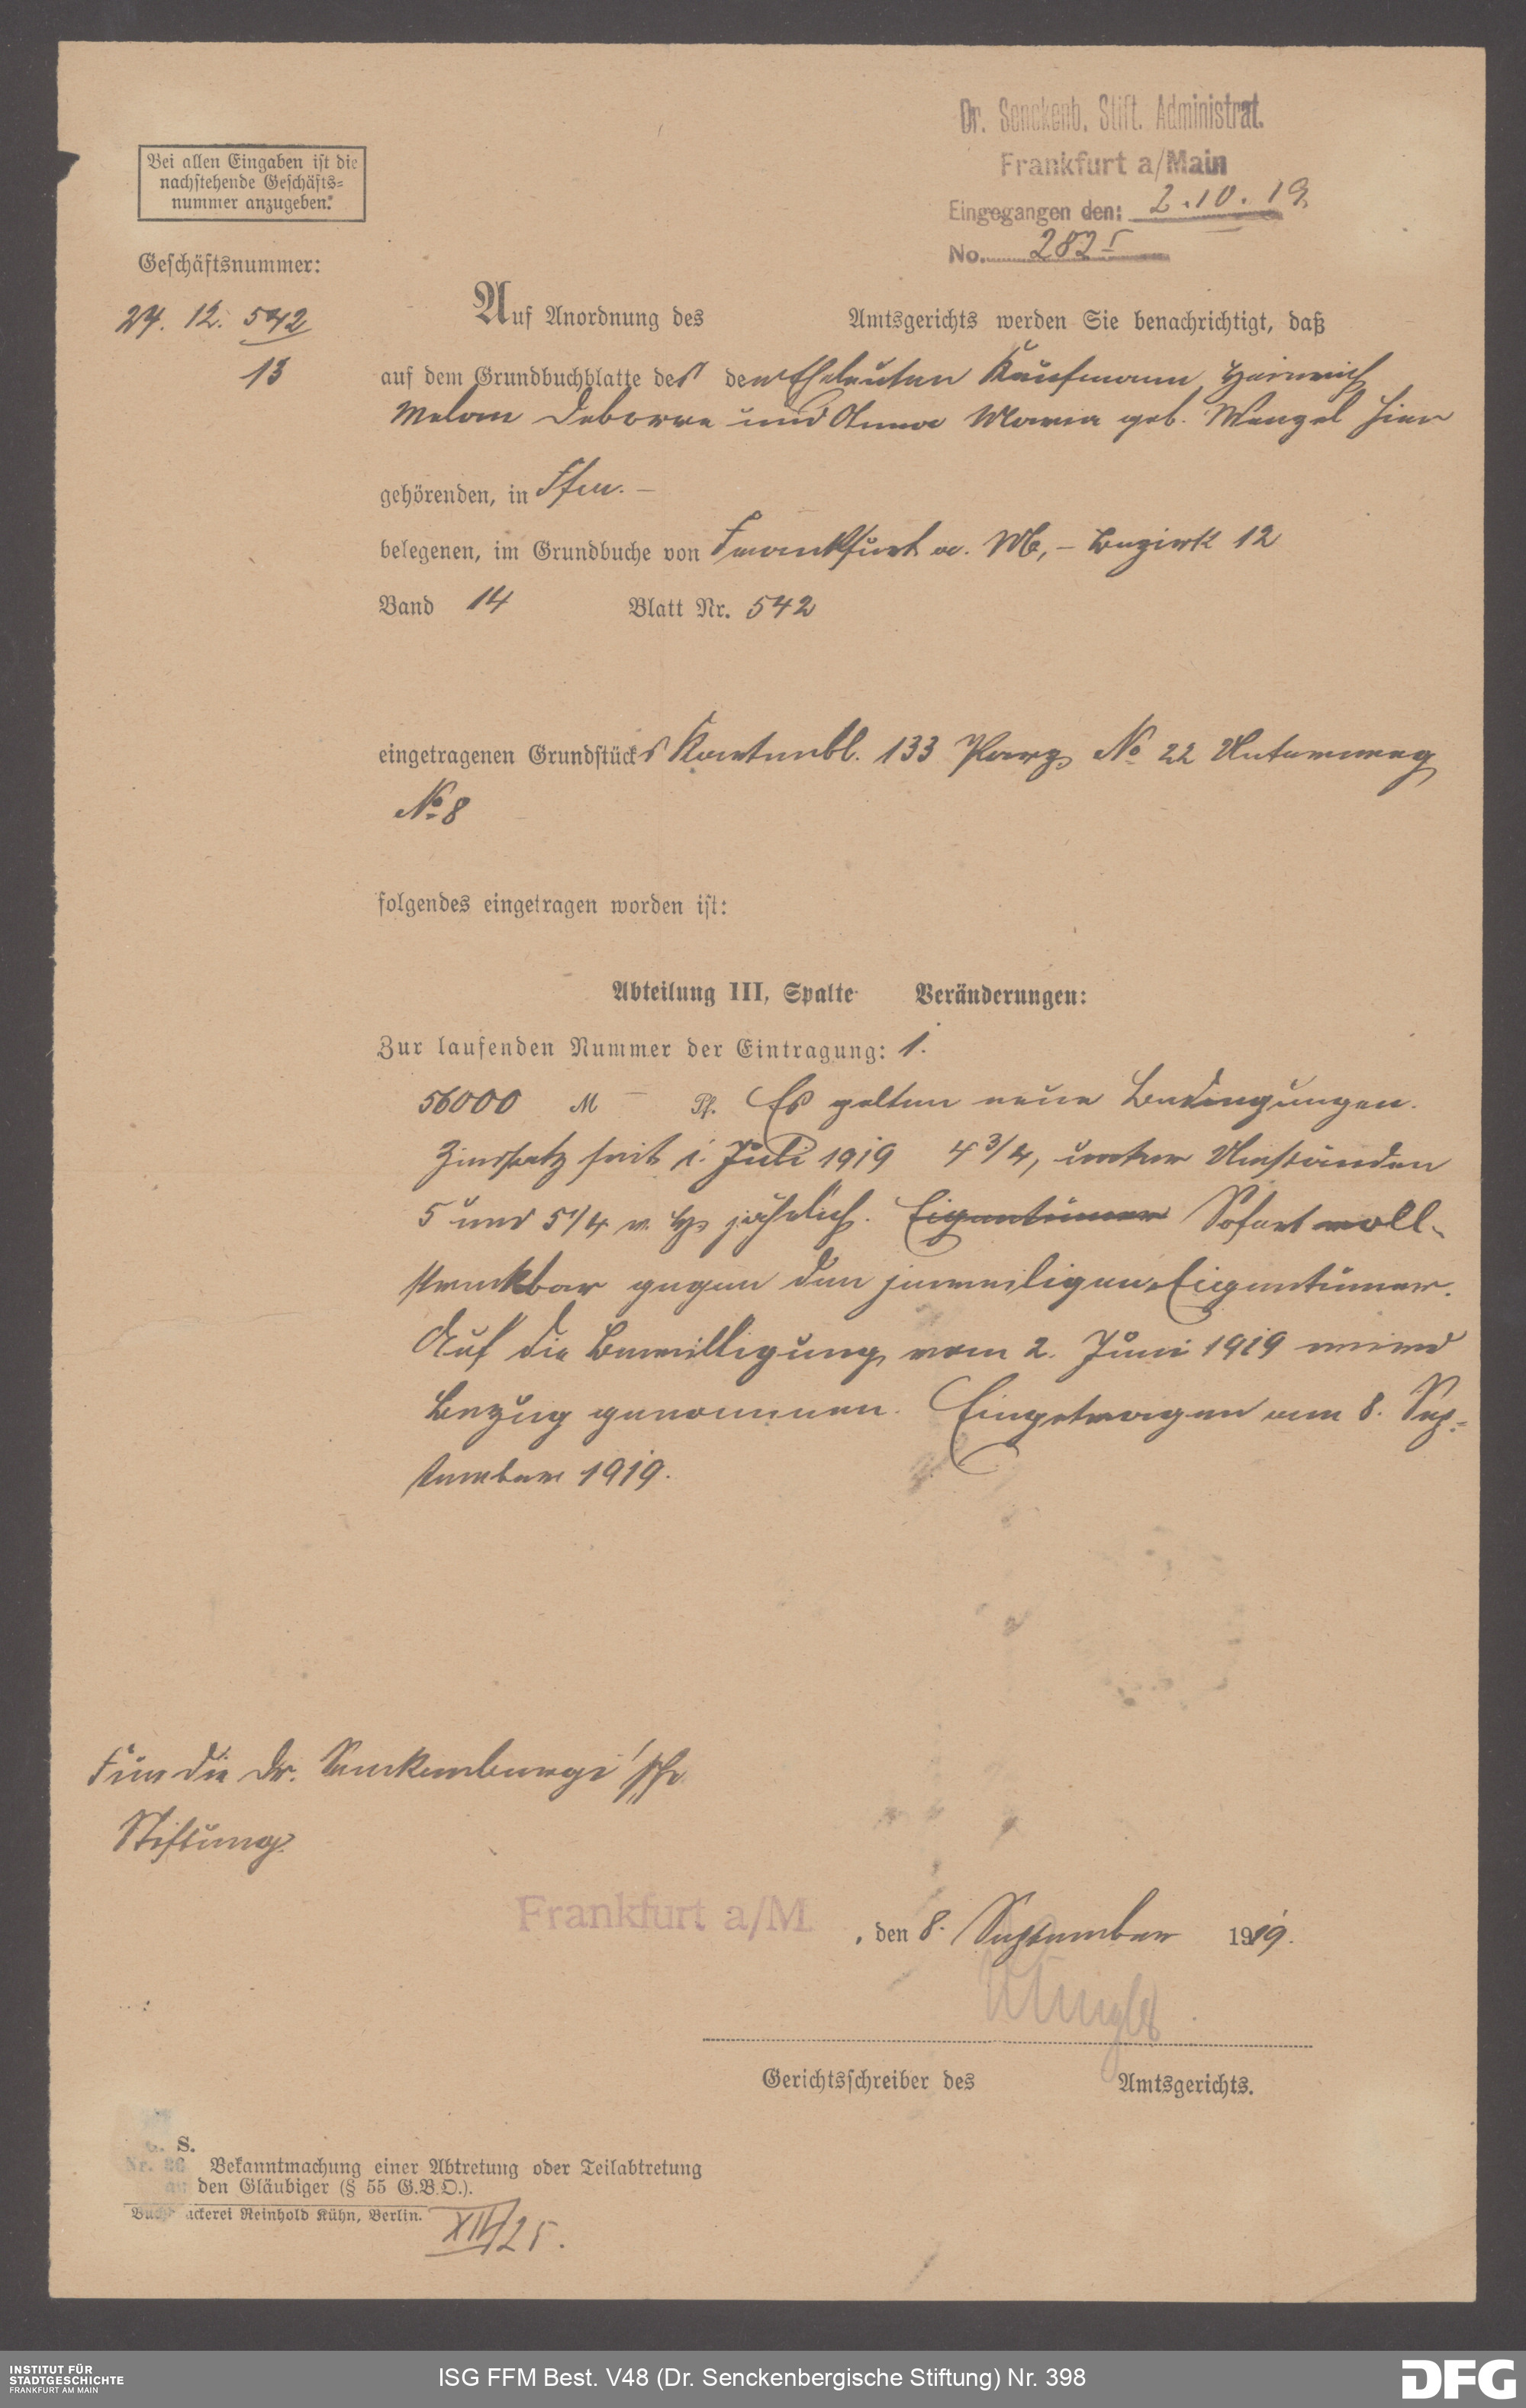 Dr. Senckenb. Stift. Administrat.
Frankfurt a/Main
Eingegangen den: 2.10.19.
No. 282 I
Bei allen Eingaben ist die
nachstehende Geschäfts-
nummer anzugeben.
Geschäftsnummer:
24. 12. 542
13
Auf Anordnung des Amtsgerichts werden Sie benachrichtigt, daß
auf dem Grundbuchblatte des den Eheleuten Kaufmann Heinrich
und Anna Maria geb. Wenzel hier
gehörenden, in Ffm. –
belegenen, im Grundbuche von Frankfurt a. M, – Bezirk 12
Band 14 Blatt Nr. 542
eingetragenen Grundstücks Kartenbl. 133 Parz. No 22 Unterweg
No 8
folgendes eingetragen worden ist:
Abteilung III, Spalte Veränderungen:
Zur laufenden Nummer der Eintragung: 1.
56000 M – Pf. Es gelten neue Bedingungen.
Zinssatz seit 1. Juli 1919 4 3/4, unter Umständen
5 und 5 1/4 v. H. jährlich. Eigentümer Sofort voll-
streckbar gegen den jeweiligen Eigentümer.
Auf die Bewilligung vom 2. Juni 1919 wird
Bezug genommen. Eingetragen am 8. Sep-
tember 1919.
Für die Dr. Senckenbergi'sche
Stiftung.
Frankfurt a/M. , den 8. September 1919.
Gerichtsschreiber des Amtsgerichts.
G. S.
Nr. 26 Bekanntmachung einer Abtretung oder Teilabtretung
an den Gläubiger (§ 55 G.B.O.).
Buchdruckerei Reinhold Kühn, Berlin.
XII/25.
INSTITUT FÜR
STADTGESCHICHTE
FRANKFURT AM MAIN
ISG FFM Best. V48 (Dr. Senckenbergische Stiftung) Nr. 398
DFG